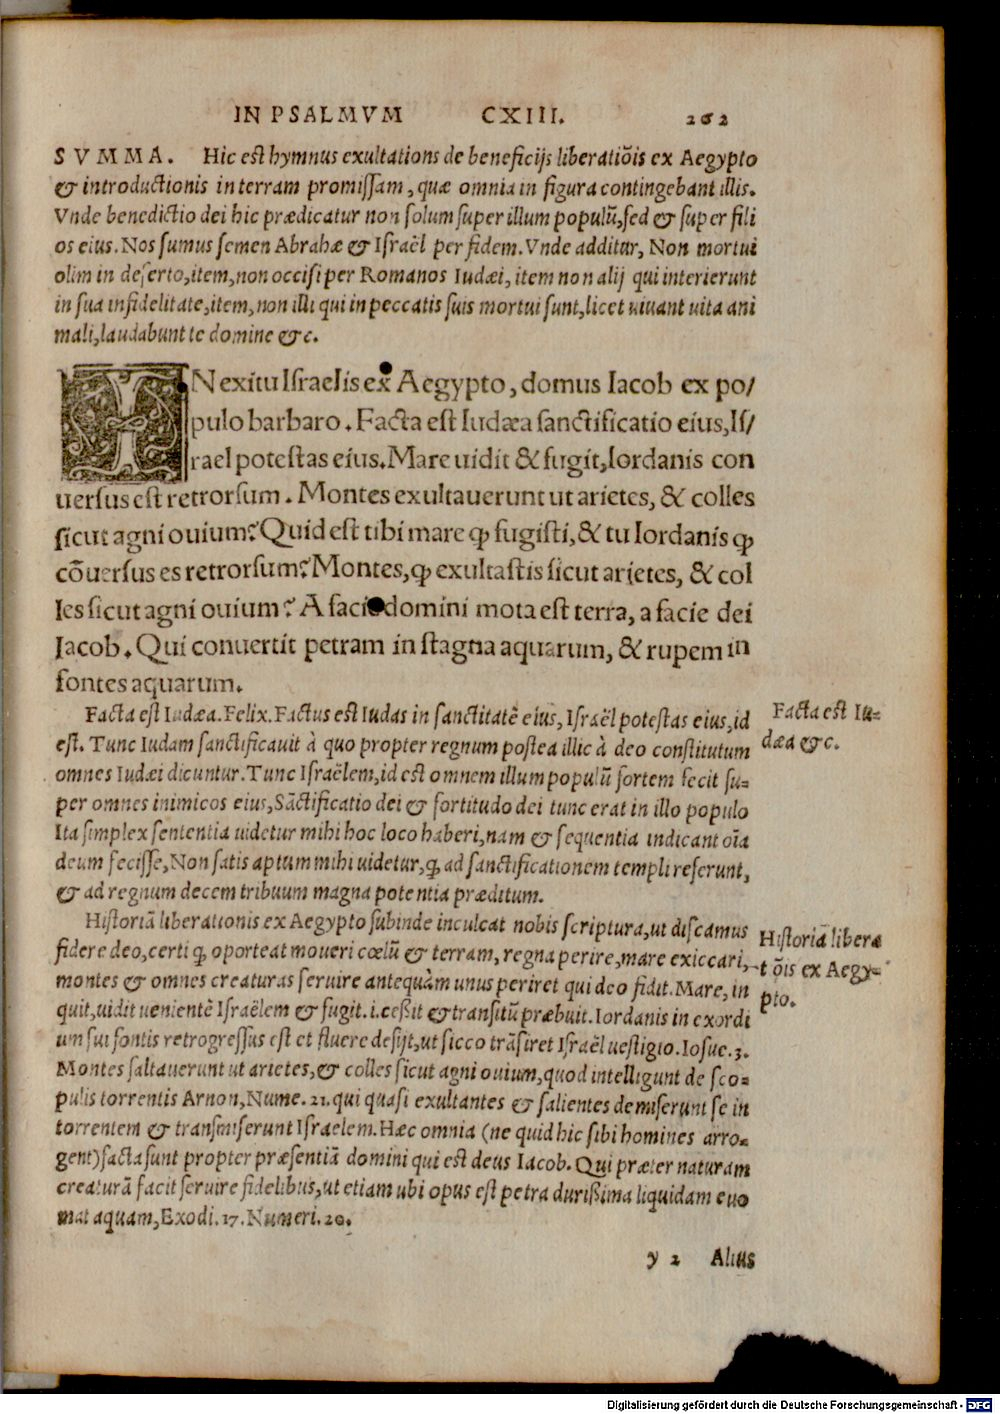 IN PSALMVM CXIII. 262
SVMMA. Hic est hymnus exultations de beneficijs liberatiõis ex Aegypto
& introductionis in terram promissam, quæ omnia in figura contingebant illis.
Vnde benedictio dei hic prædicatur non solum super illum populũ, sed & super fili
os eius. Nos sumus semen Abrahæ & Israël per fidem. Vnde additur, Non mortui
olim in deserto, item, non occisi per Romanos Iudæi, item non alij qui interierunt
in sua infidelitate, item, non illi qui in peccatis suis mortui sunt, licet uiuant uita ani
mali, laudabunt te domine &c.
IN exitu Israelis ex Aegypto, domus Iacob ex po/
pulo barbaro. Facta est Iudæa sanctificatio eius, Is/
rael potestas eius. Mare uidit & fugit, Iordanis con
uersus est retrorsum. Montes exultauerunt ut arietes, & colles
sicut agni ouium? Quid est tibi mare ꝙ fugisti, & tu Iordanis ꝙ
cõuersus es retrorsum? Montes, ꝙ exultastis sicut arietes, & col
les sicut agni ouium? A facie domini mota est terra, a facie dei
Iacob. Qui conuertit petram in stagna aquarum, & rupem in
fontes aquarum.
Facta est Iudæa. Felix. Factus est Iudas in sanctitatẽ eius, Israël potestas eius, id
est. Tunc Iudam sanctificauit à quo propter regnum postea illic à deo constitutum
omnes Iudæi dicuntur. Tunc Israëlem, id est omnem illum populũ fortem fecit su=
per omnes inimicos eius, Sãctificatio dei & fortitudo dei tunc erat in illo populo
Ita simplex sententia uidetur mihi hoc loco haberi, nam & sequentia indicant oĩa
deum fecisse, Non satis aptum mihi uidetur, ꝙ ad sanctificationem templi referunt,
& ad regnum decem tribuum magna potentia præditum.
Facta est Iu=
dæa &c.
Historiã liberationis ex Aegypto subinde inculcat nobis scriptura, ut discamus
fidere deo, certi ꝙ oporteat moueri cœlũ & terram, regna perire, mare exiccari,
montes & omnes creaturas seruire antequàm unus periret qui deo fidit. Mare, in
quit, uidit uenientẽ Israëlem & fugit. i. ceßit & transitũ præbuit. Iordanis in exordi
um sui fontis retrogressus est et fluere desijt, ut sicco trãsiret Israël uestigio. Iosue. 3.
Montes saltauerunt ut arietes, & colles sicut agni ouium, quod intelligunt de sco=
pulis torrentis Arnon, Nume. 21. qui quasi exultantes & salientes demiserunt se in
torrentem & transmiserunt Israelem. Hæc omnia (ne quid hic sibi homines arro=
gent) facta sunt propter præsentiã domini qui est deus Iacob. Qui præter naturam
creaturã facit seruire fidelibus, ut etiam ubi opus est petra durißima liquidam euo
mat aquam, Exodi. 17. Numeri. 20.
Historiã libera
tiõis ex Aegy=
pto.
y 2 Alius
Digitalisierung gefördert durch die Deutsche Forschungsgemeinschaft - DFG